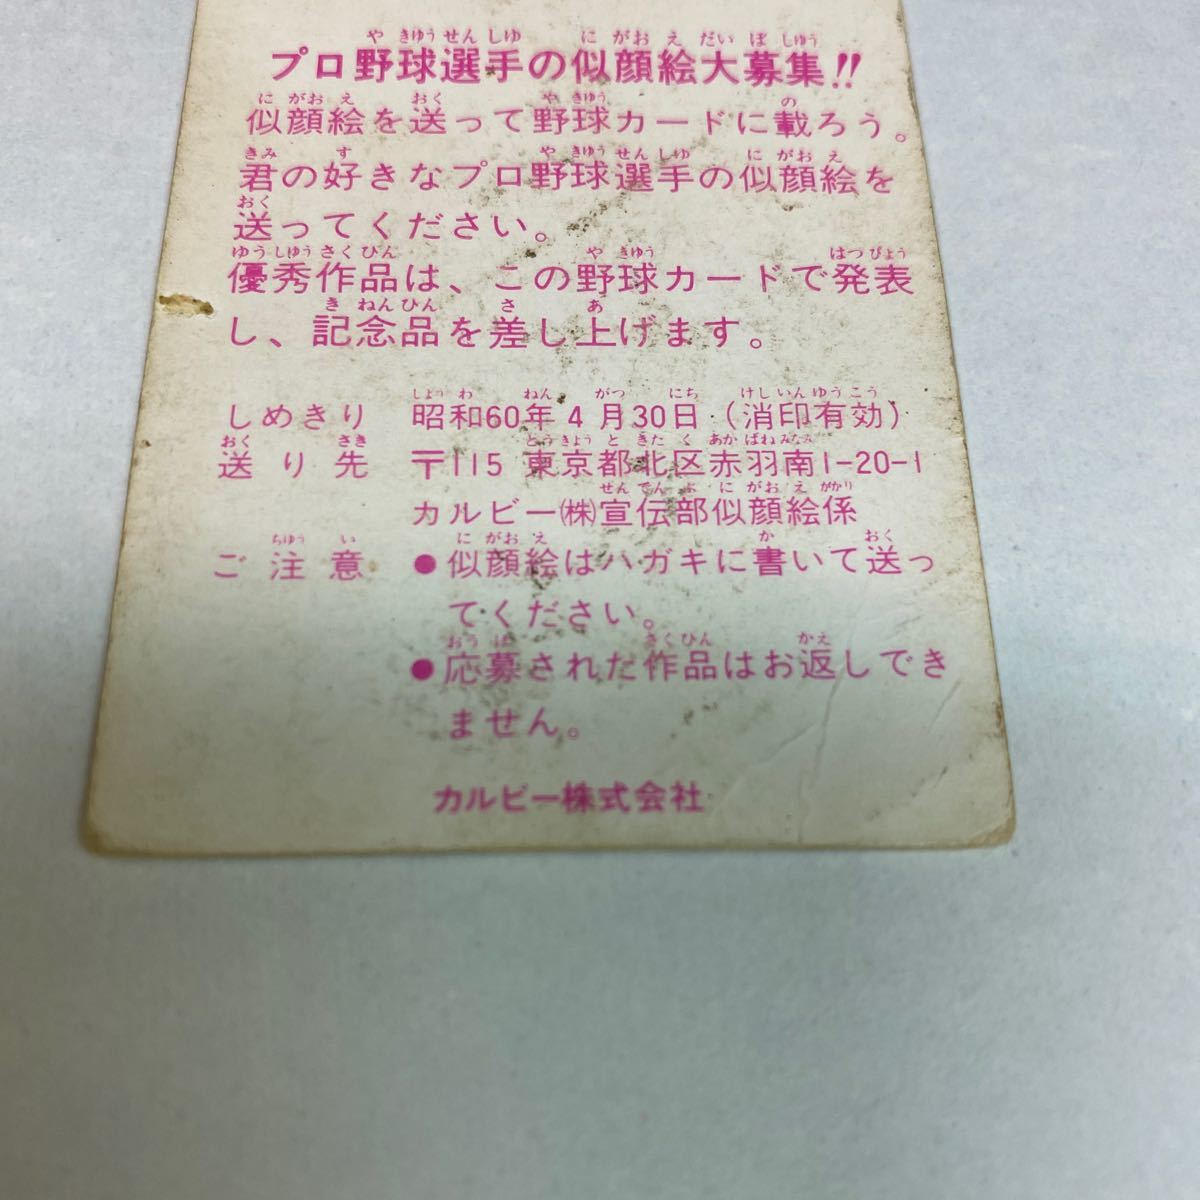 プロ野球選手の似顔絵大募集!!
似顔絵を送って野球カードに載ろう。
君の好きなプロ野球選手の似顔絵を
送ってください。
優秀作品は、この野球カードで発表
し、記念品を差し上げます。
しめきり 昭和60年4月30日(消印有効)
送り先 〒115 東京都北区赤羽南1-20-1
カルビー㈱宣伝部似顔絵係
ご注意 ●似顔絵はハガキに書いて送っ
てください。
●応募された作品はお返しでき
ません。
カルビー株式会社